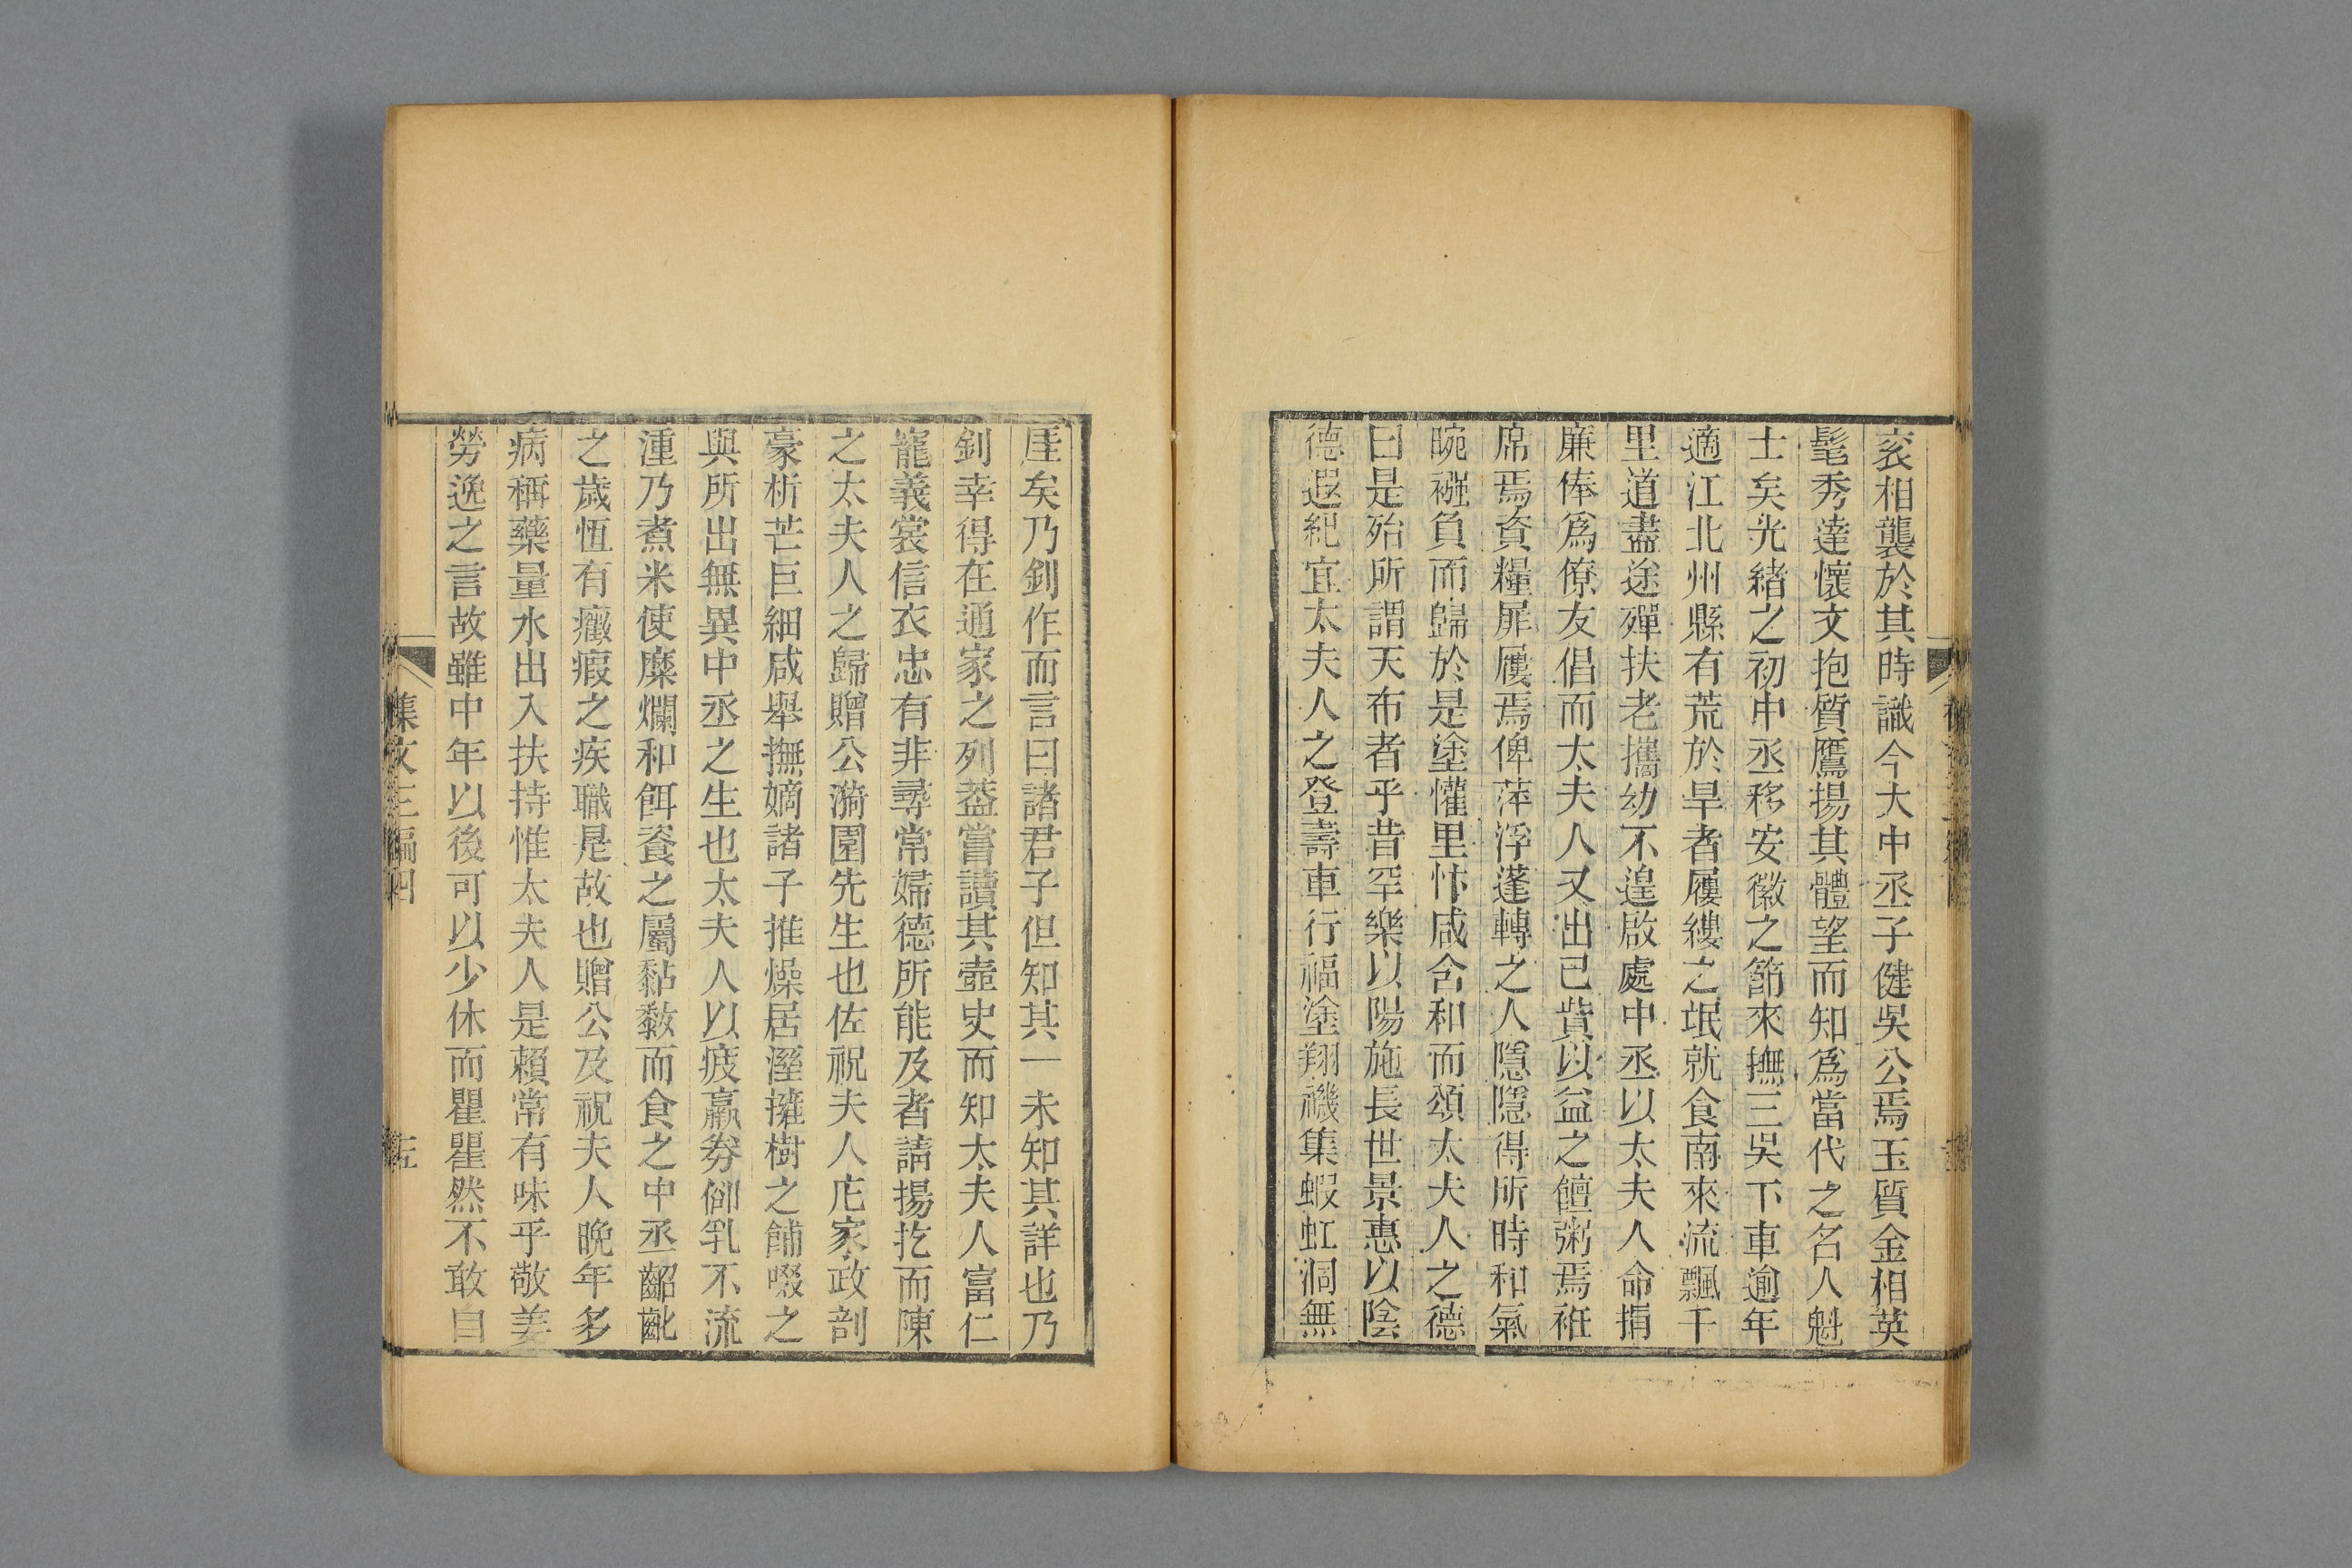 衮相襲於其時識今大中丞子健吳公焉玉質金相英
髦秀達懷文抱質鷹揚其體望而知爲當代之名人魁
士矣光緒之初中丞移安徽之節來撫三吳下車逾年
適江北州縣有荒於旱者屨縷之氓就食南來流飄千
里道盡途殫扶老攜幼不遑啟處中丞以太夫人命捐
廉俸爲僚友倡而太夫人又出己貲以益之饘粥焉袵
席焉資糧屝屨焉俾萍浮蓬轉之人隱隱得所時和氣
晼襁負而歸於是塗懽里忭咸含和而頌太夫人之德
曰是殆所謂天布者乎昔罕樂以陽施長世景惠以陰
德遐紀宜太夫人之登壽車行福塗翔禨集蝦虹洞無
厓矣乃釗作而言曰諸君子但知其一未知其詳也乃
釗幸得在通家之列葢嘗讀其壼史而知太夫人富仁
寵義裳信衣忠有非尋常婦德所能及者請揚扢而陳
之太夫人之歸贈公漪園先生也佐祝夫人庀家政剖
豪析芒巨細咸舉撫嫡諸子推燥居溼擁樹之餔啜之
與所出無異中丞之生也太夫人以疲羸劵御乳不流
湩乃煮米使糜爛和餌餈之屬黏䵑而食之中丞齠齔
之歲恆有癥瘕之疾職是故也贈公及祝夫人晩年多
病稱藥量水出入扶持惟太夫人是賴常有味乎敬姜
勞逸之言故雖中年以後可以少休而瞿瞿然不敢自
集文三編四